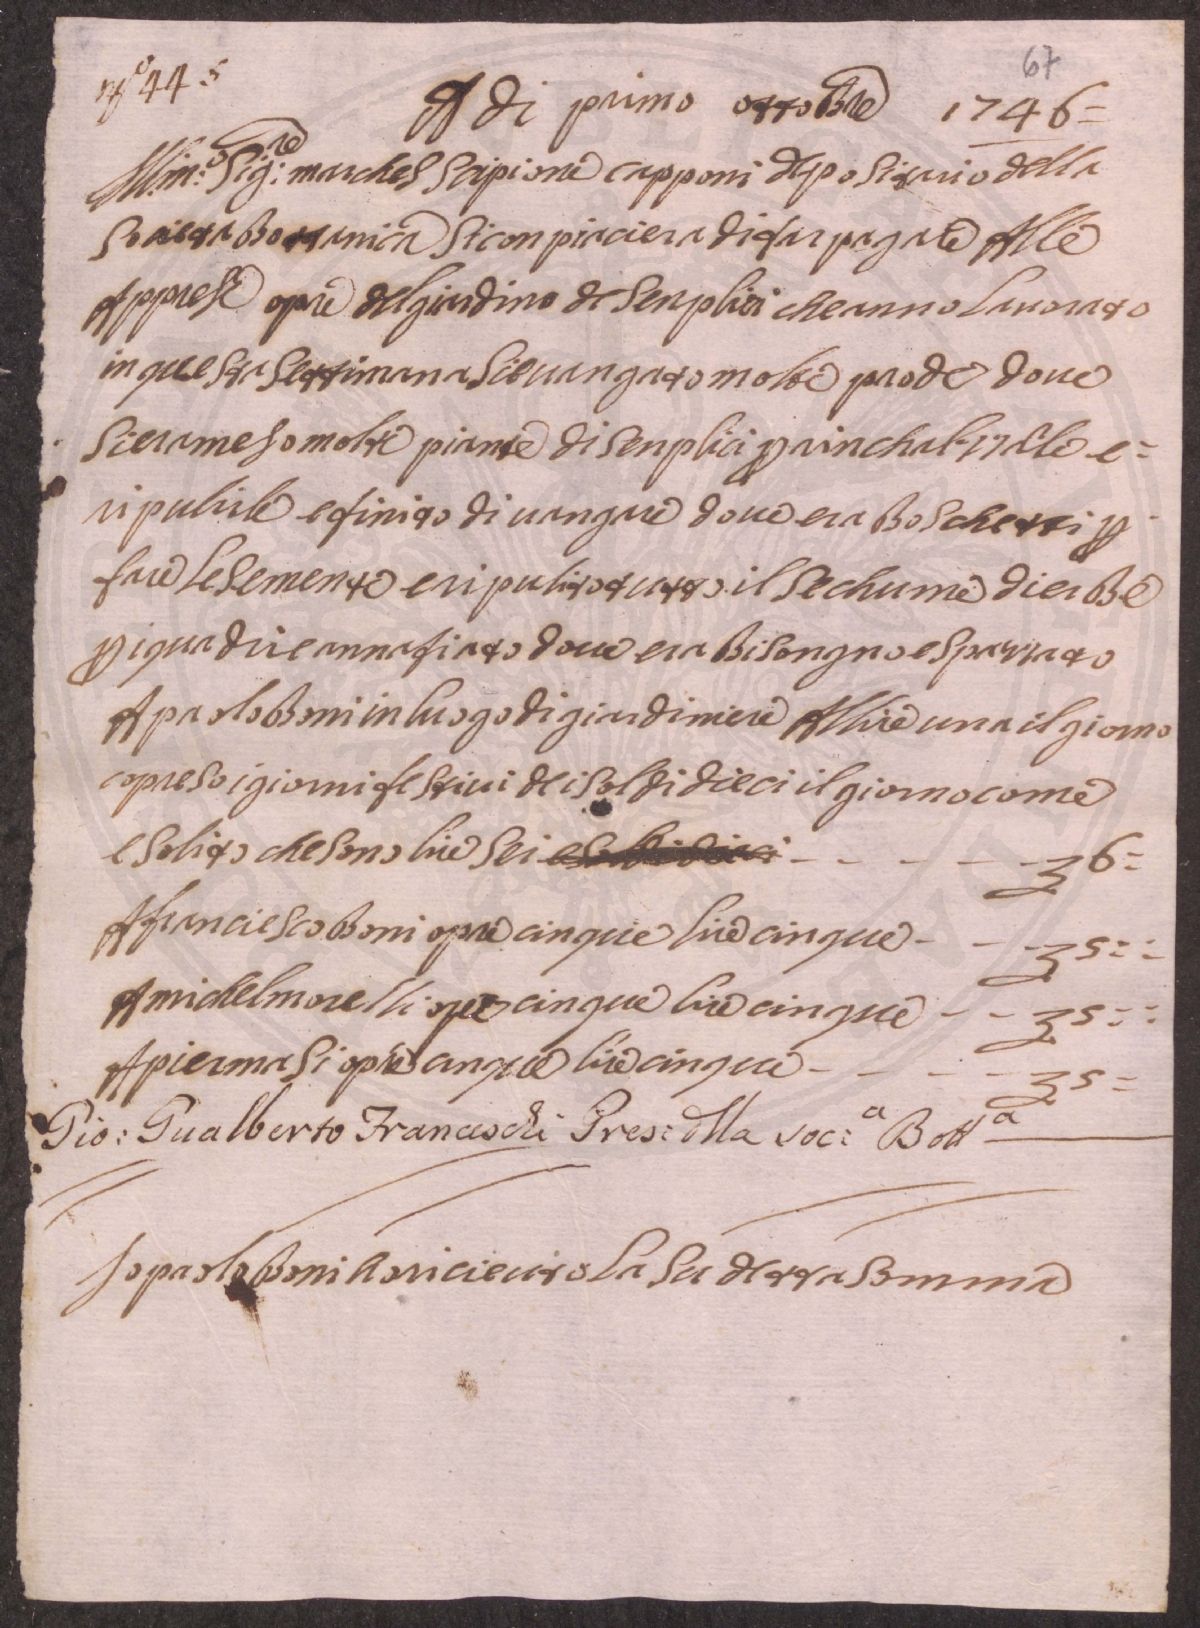 67
N.o 44:5
A di primo ottobre 1746=
Ill.mo Sig:re marches Scipione capponi depositario della
Societa Bottanica Si conpiaciera di far pagare Alle
Appresse opre del giardino de Senplici che anno Lavorato
in questa Settimana Sie vangato molte prode dove
Siera meso molte piante di Senplici p rinchalzalle e=
ripulille e finito di vangare dove era Boschetti p
fare Le Semente e ripulito tutto il Sechume di erbe
p i quadri e annafiato dove era Bisongno e Spazzato
A paolo Boni in luogo di giardiniere Allire una il giorno
copreso i giorni festivi de i Soldi dieci il giorno come
e Solito che Sono lire Sei - - - - - 6=
A franciesco Boni opre cinque lire cinque - - - 5==
A michel morelli opre cinque lire cinque - - 5==
A pier maSi opre cinque lire cinque - - - - 5=
Gio: Gualberto Franceschi Pres: della Soc:a Bott.a
Io paolo Boni o ricieuto La Su detta Somma